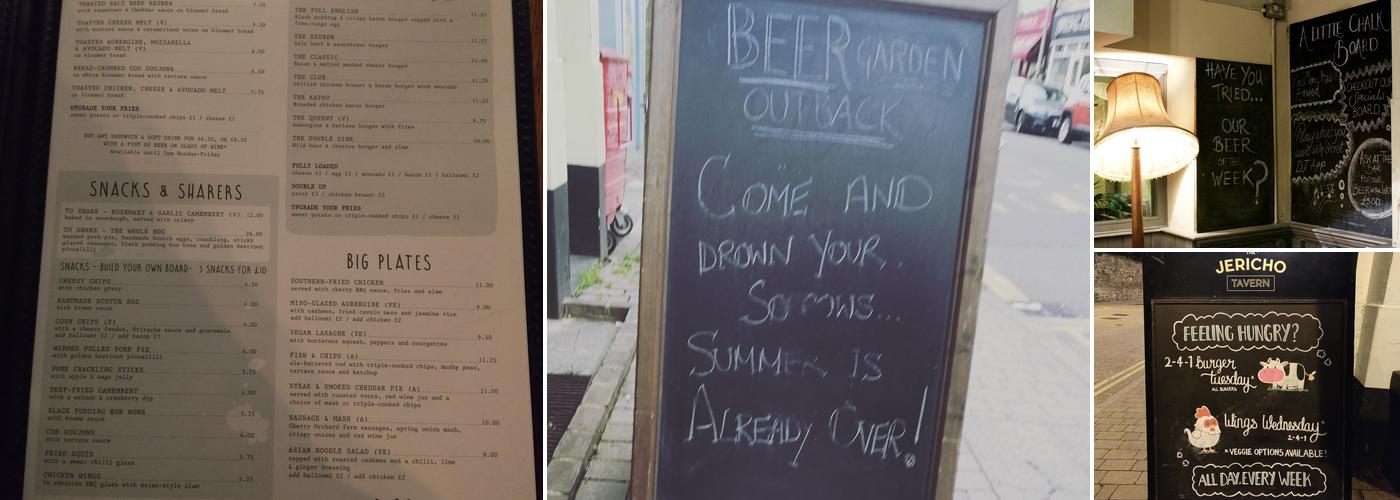 TOASTED SALT BEEF REUBEN 7.50
with sauerkraut & Cheddar sauce on bloomer bread
TOASTED CHEESE MELT (V)
with mustard sauce & caramelised onion on bloomer bread
TOASTED AUBERGINE, MOZZARELLA
& AVOCADO MELT (V) 6.00
on bloomer bread
BREAD-CRUMBED COD GOUJONS 6.50
on white bloomer bread with tartare sauce
TOASTED CHICKEN, CHEESE & AVOCADO MELT 7.75
on bloomer bread
UPGRADE YOUR FRIES
sweet potato or triple-cooked chips £1 / cheese £1
BUY ANY SANDWICH & SOFT DRINK FOR £6.50, OR £8.50
WITH A PINT OF BEER OR GLASS OF WINE*
Available until 5pm Monday-Friday
SNACKS & SHARERS
TO SHARE - ROSEMARY & GARLIC CAMEMBERT (V) 12.00
baked in sourdough, served with celery
TO SHARE - THE WHOLE HOG 24.00
warmed pork pie, handmade Scotch eggs, crackling, sticky
glazed sausages, black pudding bon bons and golden beetroot
piccalilli
SNACKS - BUILD YOUR OWN BOARD- 3 SNACKS FOR £10
CHEESY CHIPS 4.50
with chicken gravy
HANDMADE SCOTCH EGG 4.00
with brown sauce
CORN CHIPS (V) 4.00
with a cheesy fondue, Sriracha sauce and guacamole
add halloumi £2 / add bacon £1
WARMED PULLED PORK PIE 4.00
with golden beetroot piccalilli
PORK CRACKLING STICKS 3.75
with apple & sage jelly
DEEP-FRIED CAMEMBERT 4.00
with a walnut & cranberry dip
BLACK PUDDING BON BONS 3.75
with brown sauce
COD GOUJONS 4.00
with tartare sauce
FRIED SQUID 5.75
with a sweet chilli glaze
CHICKEN WINGS 5.25
in rubiniku BBQ glaze with Asian-style slaw
THE FULL ENGLISH 11.25
Black pudding & crispy bacon burger topped with a
free-range egg
THE REUBEN 11.25
Salt beef & sauerkraut burger
THE CLASSIC 11.00
Bacon & melted smoked cheese burger
THE CLUB 11.25
Grilled chicken breast & bacon burger with avocado
THE KATSU 11.25
Breaded chicken katsu burger
THE QUEENY (V) 8.75
Aubergine & harissa burger with fries
THE DOUBLE OINK 10.00
Wild boar & chorizo burger and slaw
FULLY LOADED
cheese £1 / egg £1 / avocado £1 / bacon £1 / halloumi £2
DOUBLE UP
patty £3 / chicken breast £3
UPGRADE YOUR FRIES
sweet potato or triple-cooked chips £1 / cheese £1
BIG PLATES
SOUTHERN-FRIED CHICKEN 11.00
served with cherry BBQ sauce, fries and slaw
MISO-GLAZED AUBERGINE (VE) 9.00
with cashews, fried cavolo nero and jasmine rice
add halloumi £2 / add chicken £2
VEGAN LASAGNE (VE) 9.50
with butternut squash, peppers and courgettes
FISH & CHIPS (A) 11.25
ale-battered cod with triple-cooked chips, mushy peas,
tartare sauce and ketchup
STEAK & SMOKED CHEDDAR PIE (A) 11.50
served with roasted roots, red wine jus and a
choice of mash or triple-cooked chips
SAUSAGE & MASH (A) 10.00
Cherry Orchard farm sausages, spring onion mash,
crispy onions and red wine jus
ASIAN NOODLE SALAD (VE) 8.00
topped with roasted cashews and a chilli, lime
& ginger dressing
add halloumi £2 / add chicken £2
BEER GARDEN
OUTBACK
COME AND
DROWN YOUR..
SORROWS...
SUMMER IS
ALREADY OVER!
HAVE YOU
TRIED...
OUR
BEER
OF THE
WEEK?
A LITTLE CHALK
BOARD
CHECK OUT OUR
Specials
BOARD
ASK AT THE
BAR
FOR OUR
BEER OF THE WEEK
£3.00
THE
JERICHO
TAVERN
FEELING HUNGRY?
2-4-1 Burger
Tuesday
ALL BURGERS
Wings Wednesday
2-4-1
*VEGGIE OPTIONS AVAILABLE!
ALL DAY, EVERY WEEK